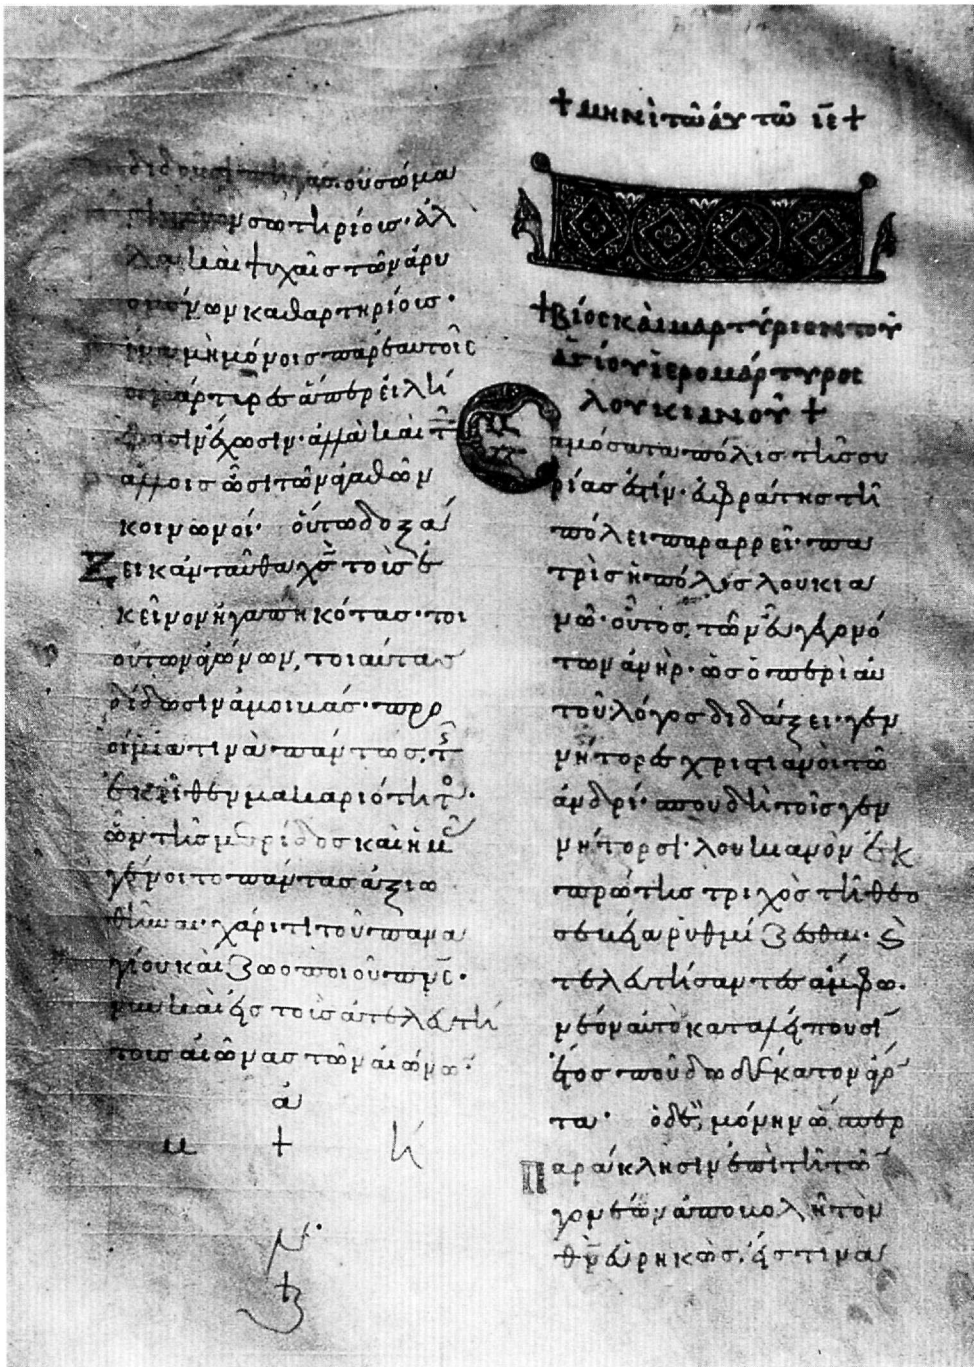 διδοῦσι πηγάς. οὐ σώμα
σωτηρίοις· ἀλ
λὰ καὶ ψυχαῖς τῶν ἀρυ
ομένων καθαρτηρίοις·
ἵνα μὴ μόνοις παρ' ἑαυτοῖς
οἱ μάρτυρες ἅπερ εἰλή
φασιν ἔχωσιν· ἀλλὰ καὶ τ
ἄλλοις ὦσι τῶν ἀγαθῶν
κοινωνοί· οὕτω δοξά
ζει κἀνταῦθα χς τοὺς ἐ
κεῖνον ἠγαπηκότας· τοι
ούτων ἀγώνων, τοιαύτας
δίδωσιν ἀμοιβάς· προ
οίμιά τινα πάντως, τ
ἐκεῖθεν μακαριότητο·
ὧν τῆς μερίδος καὶ ἡμ
γένοιτο πάντας ἀξιω
θῆναι· χάριτι τοῦ πανα
γίου καὶ ζωοποιοῦ πνς·
νῦν καὶ εἰς τοὺς ἀτελευτή
τους αἰῶνας τῶν αἰώνω·
+ μηνὶ τῶ αὐτῶ ιε +
+ βίος καὶ μαρτύριον τοῦ
ἁγίου ἱερομάρτυρος
λουκιανοῦ +
Σαμόσατα πόλις τῆς συ
ρίας ἐστίν· εὐφράτης τῆ
πόλει παραρρεῖ· πα
τρὶς ἡ πόλις λουκια
νῶ· οὗτος, τῶν εὖ γεγονό
των ἀνὴρ· ὡς ὁ περὶ αὐ
τοῦ λόγος διδάξει· γεν
νήτορες χριστιανοὶ τῶ
ἀνδρί· σπουδὴ τοῖς γεν
νήτορσι· λουκιανὸν ἐκ
πρώτης τριχὸς τῆ θεο
σεβεία ῥυθμίζεσθαι·
τελευτήσαντες ἄμφω·
νέον αὐτὸ καταλείπουσι
ἔτος που δωδέκατον ἄρ
τι· ὁ δὲ, μόνην ὥσπερ
παράκλησιν ἐπὶ τῆ τῶ
γονέων ἀποβολῆ τὸν
θν εὑρηκὼς, εἴς τινα